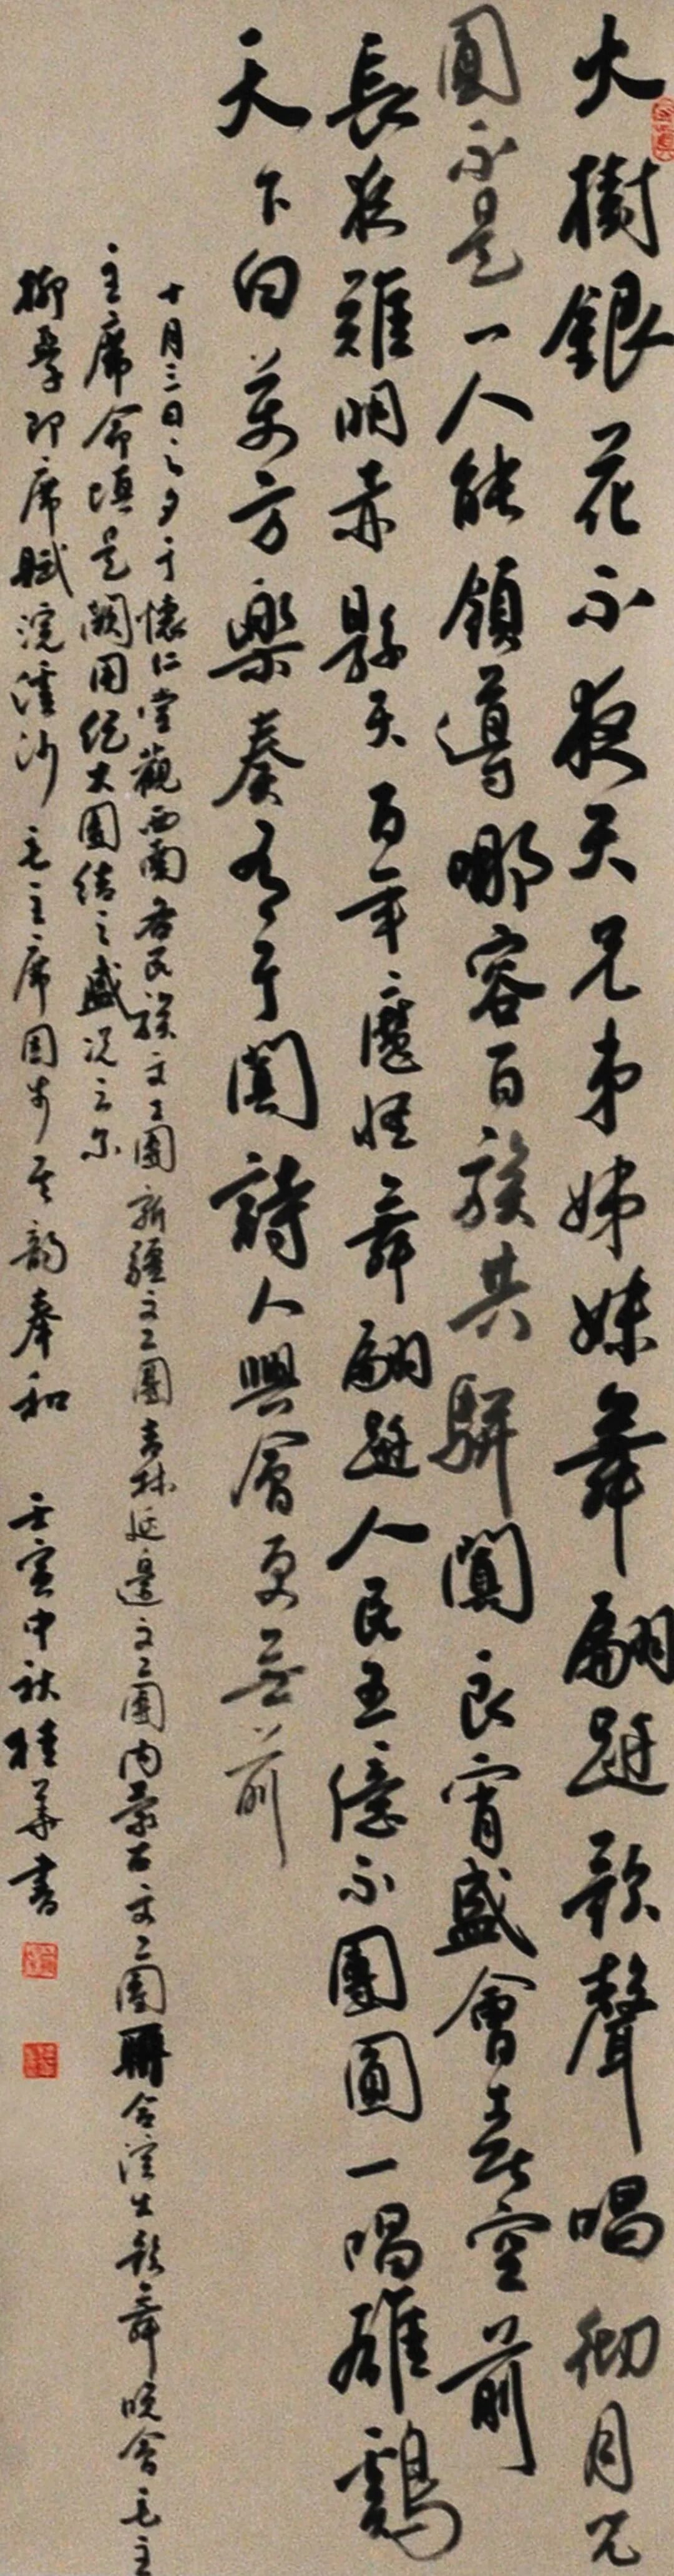 火樹銀花不夜天兄弟姊妹舞翩躚歌聲唱徹月兒
圓不是一人能領導哪容百族共駢闐良宵盛會喜空前
長夜難明赤縣天百年魔怪舞翩躚人民五億不團圓一唱雄雞
天下白萬方樂奏有于闐詩人興會更無前
十月三日之夕于懷仁堂觀西南各民族文工團新疆文工團吉林延邊文工團内蒙古文工團聯合演出歌舞晚會毛主
主席命填是闋用紀大團結之盛况云尔
柳亞子即席賦浣溪沙毛主席因步其韵奉和 壬寅中秋桂華書